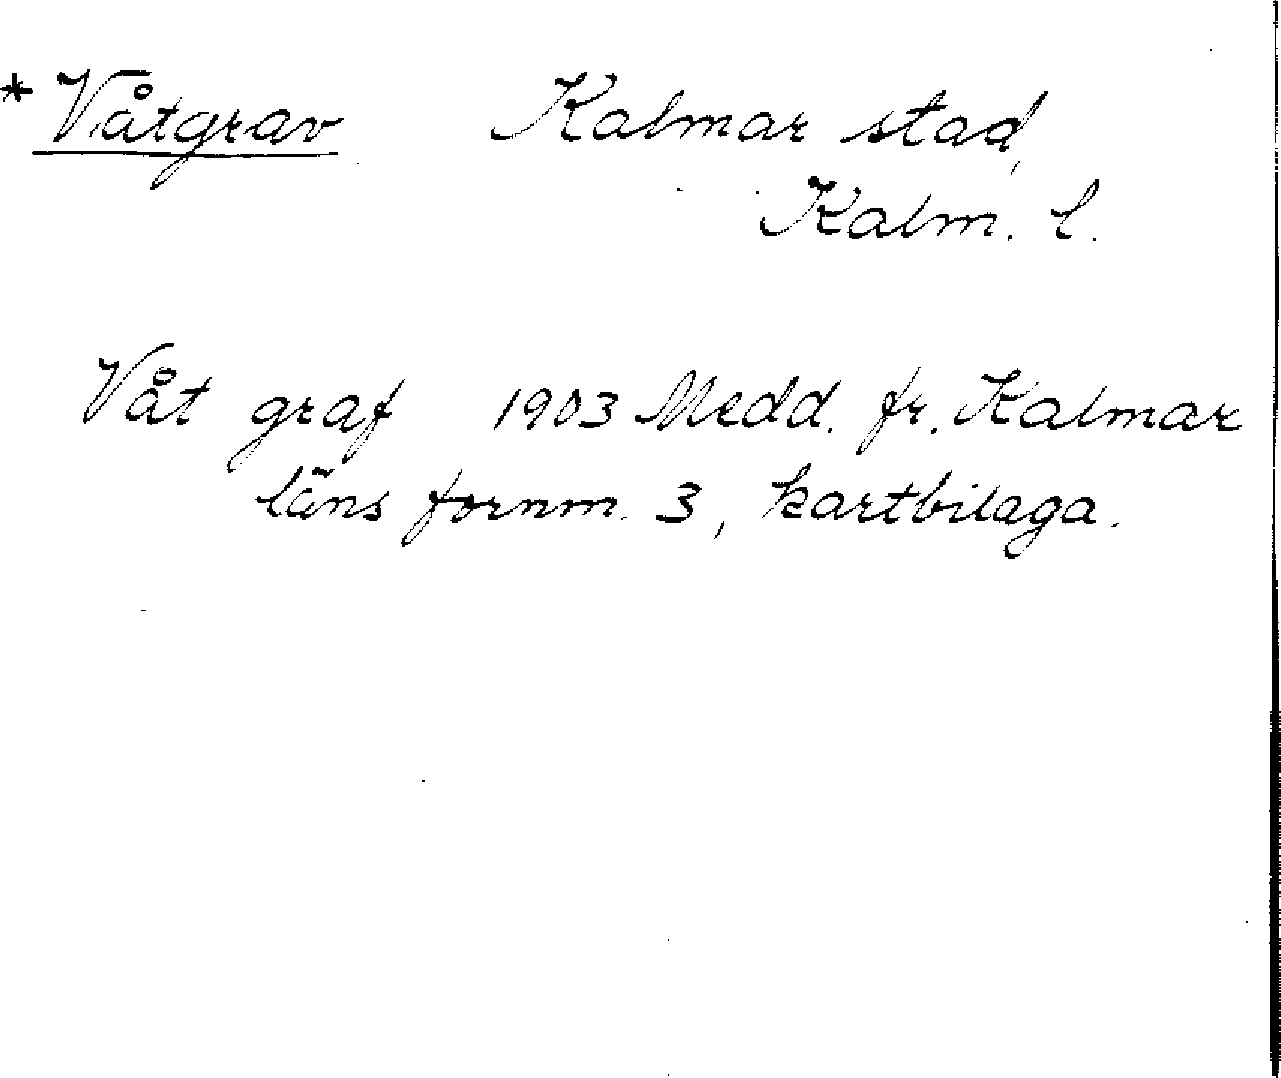 * Våtgrav Kalmar stad,
Kalm. l.
Våt graf 1903 Medd. fr. Kalmar
läns fornm. 3, kartbilaga.